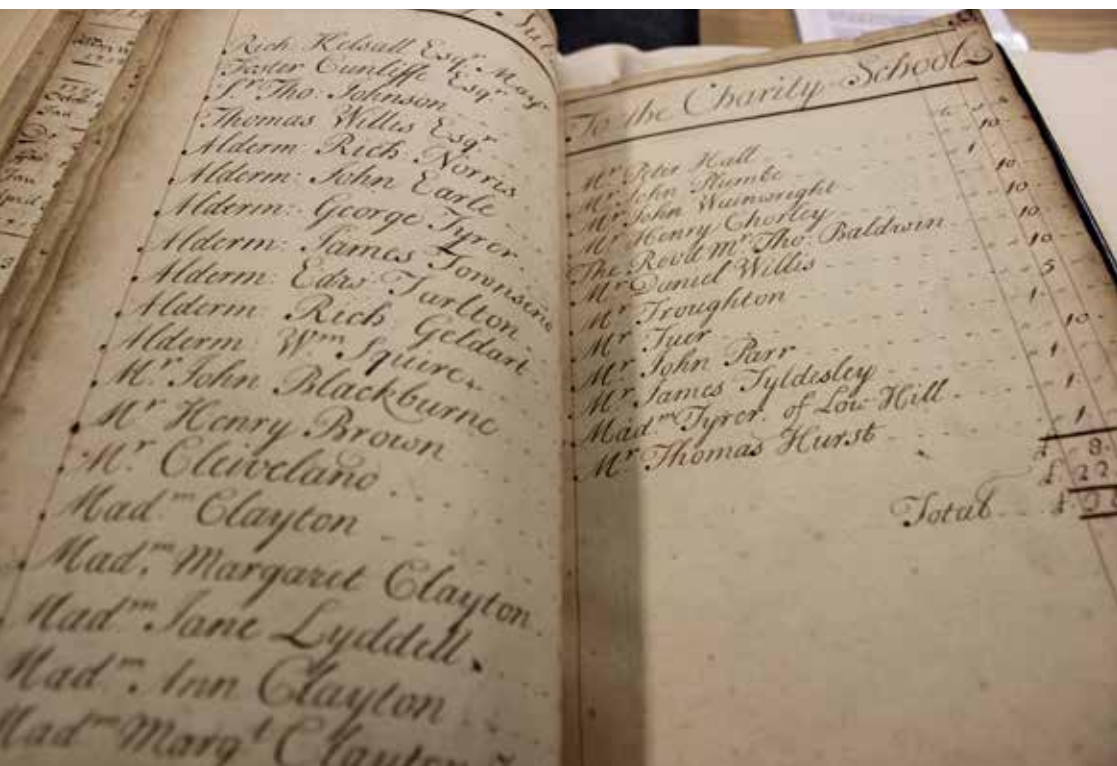 Sub
Rich Kelsall Esqr. Mayr
Foster Cunliffe Esqr.
Sr. Tho: Johnson
Thomas Willis Esqr
Alderm: Rich: Norris
Alderm: John Earle
Alderm: George Tyrer
Alderm: James Townsend
Alderm: Edw: Tarlton
Alderm: Rich: Geldart
Alderm: Wm Squires
Mr. John Blackburne
Mr Henry Brown
Mr. Cleiveland
Madm Clayton
Madm. Margaret Clayton
Madm Jane Lyddell
Madm Ann Clayton
Madm Margt Clayton
To the Charity-Schools
Mr Peter Hall 10
Mr John Plumbe 1
Mr John Wainwright 10
Mr Henry Chorley 10
The Revd Mr Tho: Baldwin 10
Mr Daniel Willis 10
Mr Troughton 5
Mr Tuer 1
Mr John Parr 10
Mr James Tyldesley 1
Madm Tyrer of Low-Hill 1
Mr Thomas Hurst 1
£ 8.
£ 22
Total £